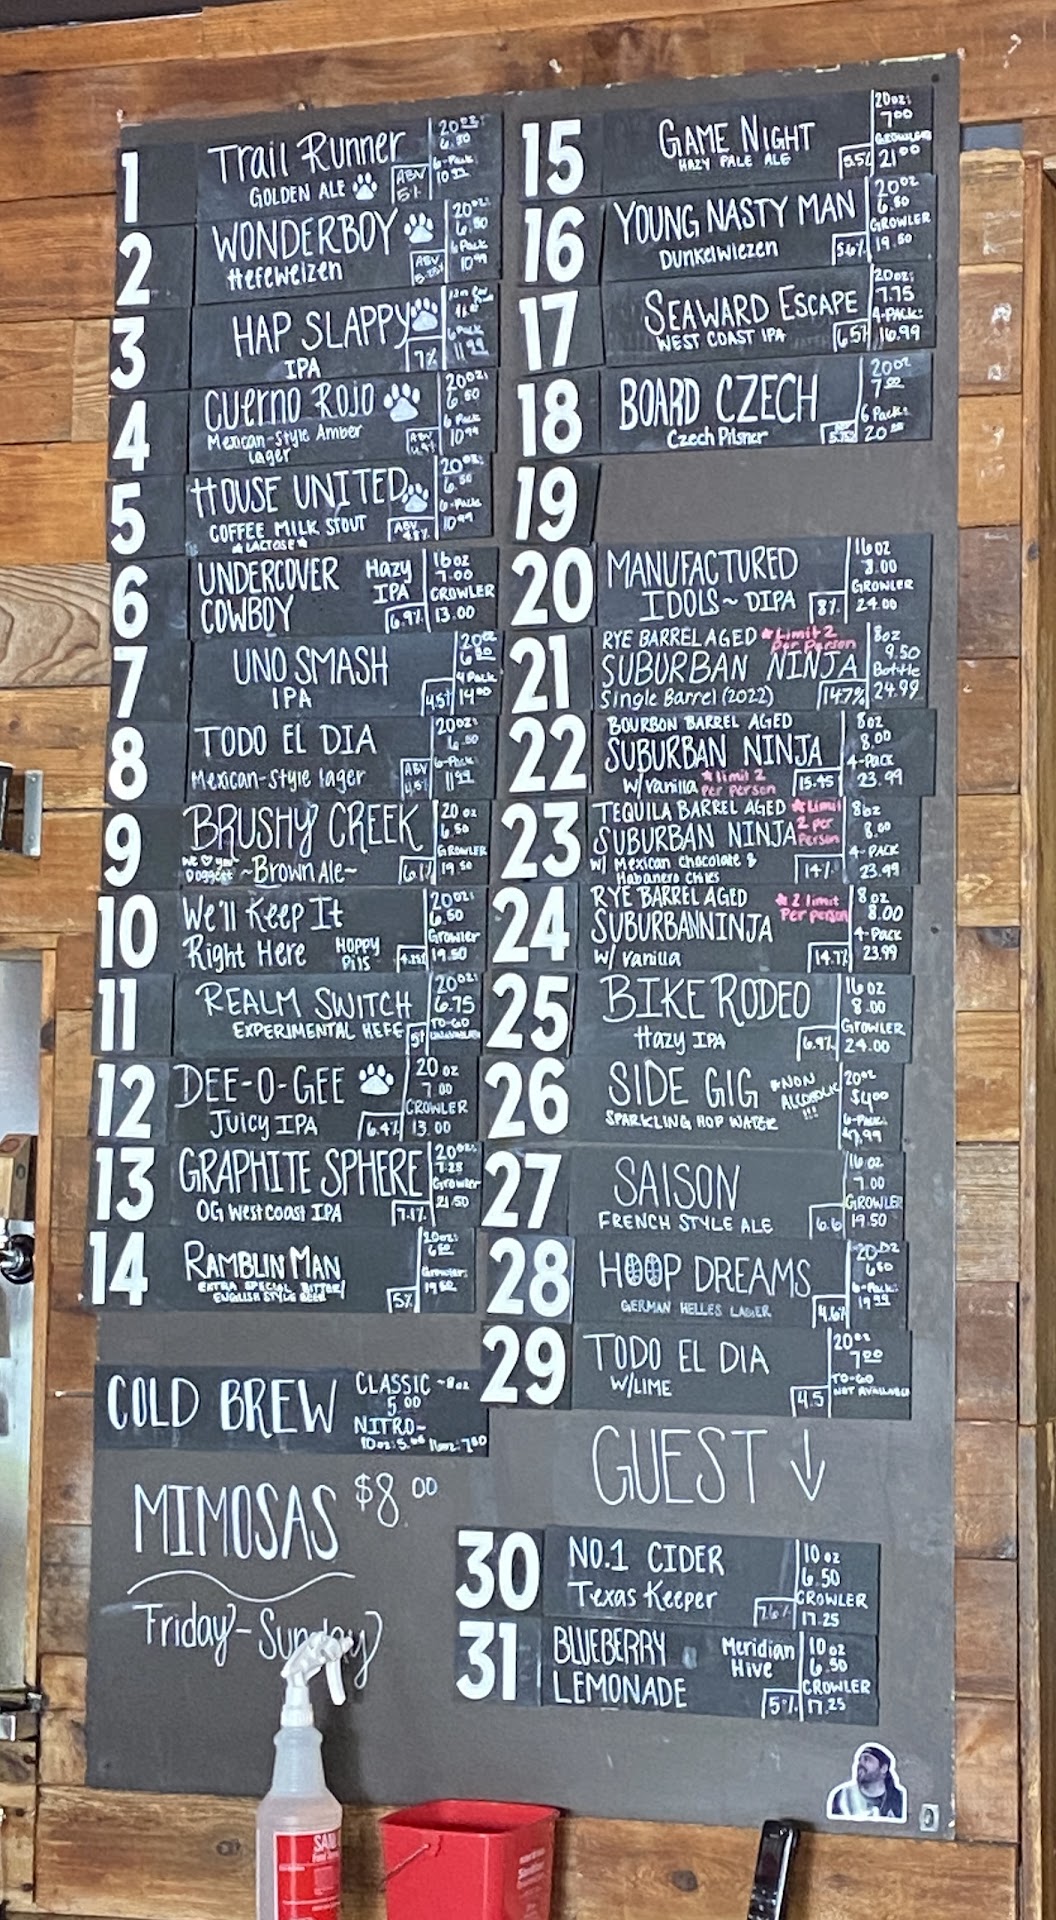 1
Trail Runner
GOLDEN ALE
ABV
5%
20oz:
6.50
6-Pack:
10.99
2
WONDERBOY
Hefeweizen
ABV
20oz:
6.50
6 Pack
10.99
3
HAP SLAPPY
IPA
7%
6 Pack
11.99
4
CUERNO ROJO
Mexican-Style Amber
Lager
ABV
20oz:
6.50
6 Pack
10.99
5
HOUSE UNITED
COFFEE MILK STOUT
*LACTOSE*
ABV
20oz:
6.50
6-Pack
10.99
6
UNDERCOVER
COWBOY
Hazy
IPA
6.9%
16oz
7.00
CROWLER
13.00
7
UNO SMASH
IPA
20oz
6.50
4 Pack
14.00
8
TODO EL DIA
Mexican-Style lager
ABV
20oz:
6.50
6-Pack:
11.99
9
BRUSHY CREEK
We ♡ you
Doggett
~Brown Ale~
6.1%
20 oz
6.50
GROWLER
19.50
10
We'll Keep It
Right Here
HOPPY
Pils
20oz:
6.50
Growler
19.50
11
REALM SWITCH
EXPERIMENTAL HEFE
5%
20oz:
6.75
TO-GO
12
DEE-O-GEE
Juicy IPA
6.4%
20 oz
7.00
CROWLER
13.00
13
GRAPHITE SPHERE
OG West Coast IPA
7.1%
20oz:
7.25
Growler
21.50
14
RAMBLIN MAN
EXTRA SPECIAL BITTER/
ENGLISH STYLE BEER
5%
20oz:
6.50
Growler:
19.50
COLD BREW
CLASSIC ~8oz
5.00
NITRO~
10oz: 5.00 16oz: 7.00
MIMOSAS $8.00
Friday - Sunday
15
GAME NIGHT
HAZY PALE ALE
5.5%
20oz:
7.00
GROWLER
21.00
16
YOUNG NASTY MAN
Dunkelwiezen
5.6%
20oz
6.50
GROWLER
19.50
17
SEAWARD ESCAPE
WEST COAST IPA
6.5%
20oz:
7.75
4-PACK:
16.99
18
BOARD CZECH
Czech Pilsner
20oz
7.00
6 Pack:
20.00
19
20
MANUFACTURED
IDOLS ~ DIPA
8%
16oz
8.00
GROWLER
24.00
21
RYE BARREL AGED
*Limit 2
per person
SUBURBAN NINJA
Single Barrel (2022)
14.7%
8oz
9.50
Bottle
24.99
22
BOURBON BARREL AGED
SUBURBAN NINJA
W/vanilla
*limit 2
Per person
15.45
8oz
8.00
4-PACK
23.99
23
TEQUILA BARREL AGED
*Limit
2 per
Person
SUBURBAN NINJA
W/ Mexican Chocolate &
Habanero Chiles
14%
8oz
8.00
4-PACK
23.99
24
RYE BARREL AGED
*2 limit
Per person
SUBURBAN NINJA
W/ vanilla
14.7%
8oz
8.00
4-Pack
23.99
25
BIKE RODEO
Hazy IPA
6.9%
16oz
8.00
GROWLER
24.00
26
SIDE GIG
*NON
ALCOHOLIC
!!!
SPARKLING HOP WATER
20oz
$4.00
6-Pack:
27
SAISON
FRENCH STYLE ALE
6.6
16 oz
7.00
GROWLER
19.50
28
HOOP DREAMS
GERMAN HELLES LAGER
4.6%
20-OZ
6.50
6-Pack:
29
TODO EL DIA
W/LIME
4.5
20oz
7.00
TO-GO
NOT AVAILABLE
GUEST ↓
30
NO.1 CIDER
Texas Keeper
7.6%
10oz
6.50
CROWLER
17.25
31
BLUEBERRY
LEMONADE
Meridian
Hive
5%
10oz
6.50
CROWLER
17.25